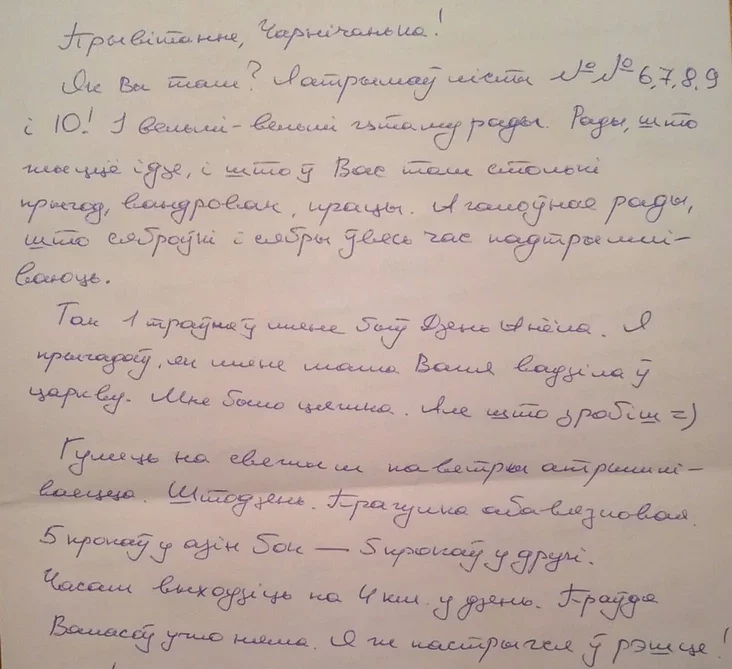 Прывітанне, Чарнічанька!
Як Вы там? Я атрымаў лісты №№ 6,7,8,9
і 10! І вельмі-вельмі гэтаму рады. Рады, што
жыццё ідзе, і што ў Вас там столькі
прыгод, вандровак, працы. А галоўнае рады,
што сяброўкі і сябры ўвесь час падтрымлі-
ваюць.
Так 1 траўня ў мяне быў Дзень Анёла. Я
прыгадаў, як мяне мама Валя вадзіла ў
царкву. Мне было цяжка. Але што зробіш =)
Гуляць на свежым паветры атрымлі-
ваецца. Штодзень. Прагулка абавязковая.
5 крокаў у адзін бок — 5 крокаў у другі.
Часам выходзіць па 4 км. у дзень. Праўда
Валасоў ужо няма. Я ж пастрыгся ў рэшце!